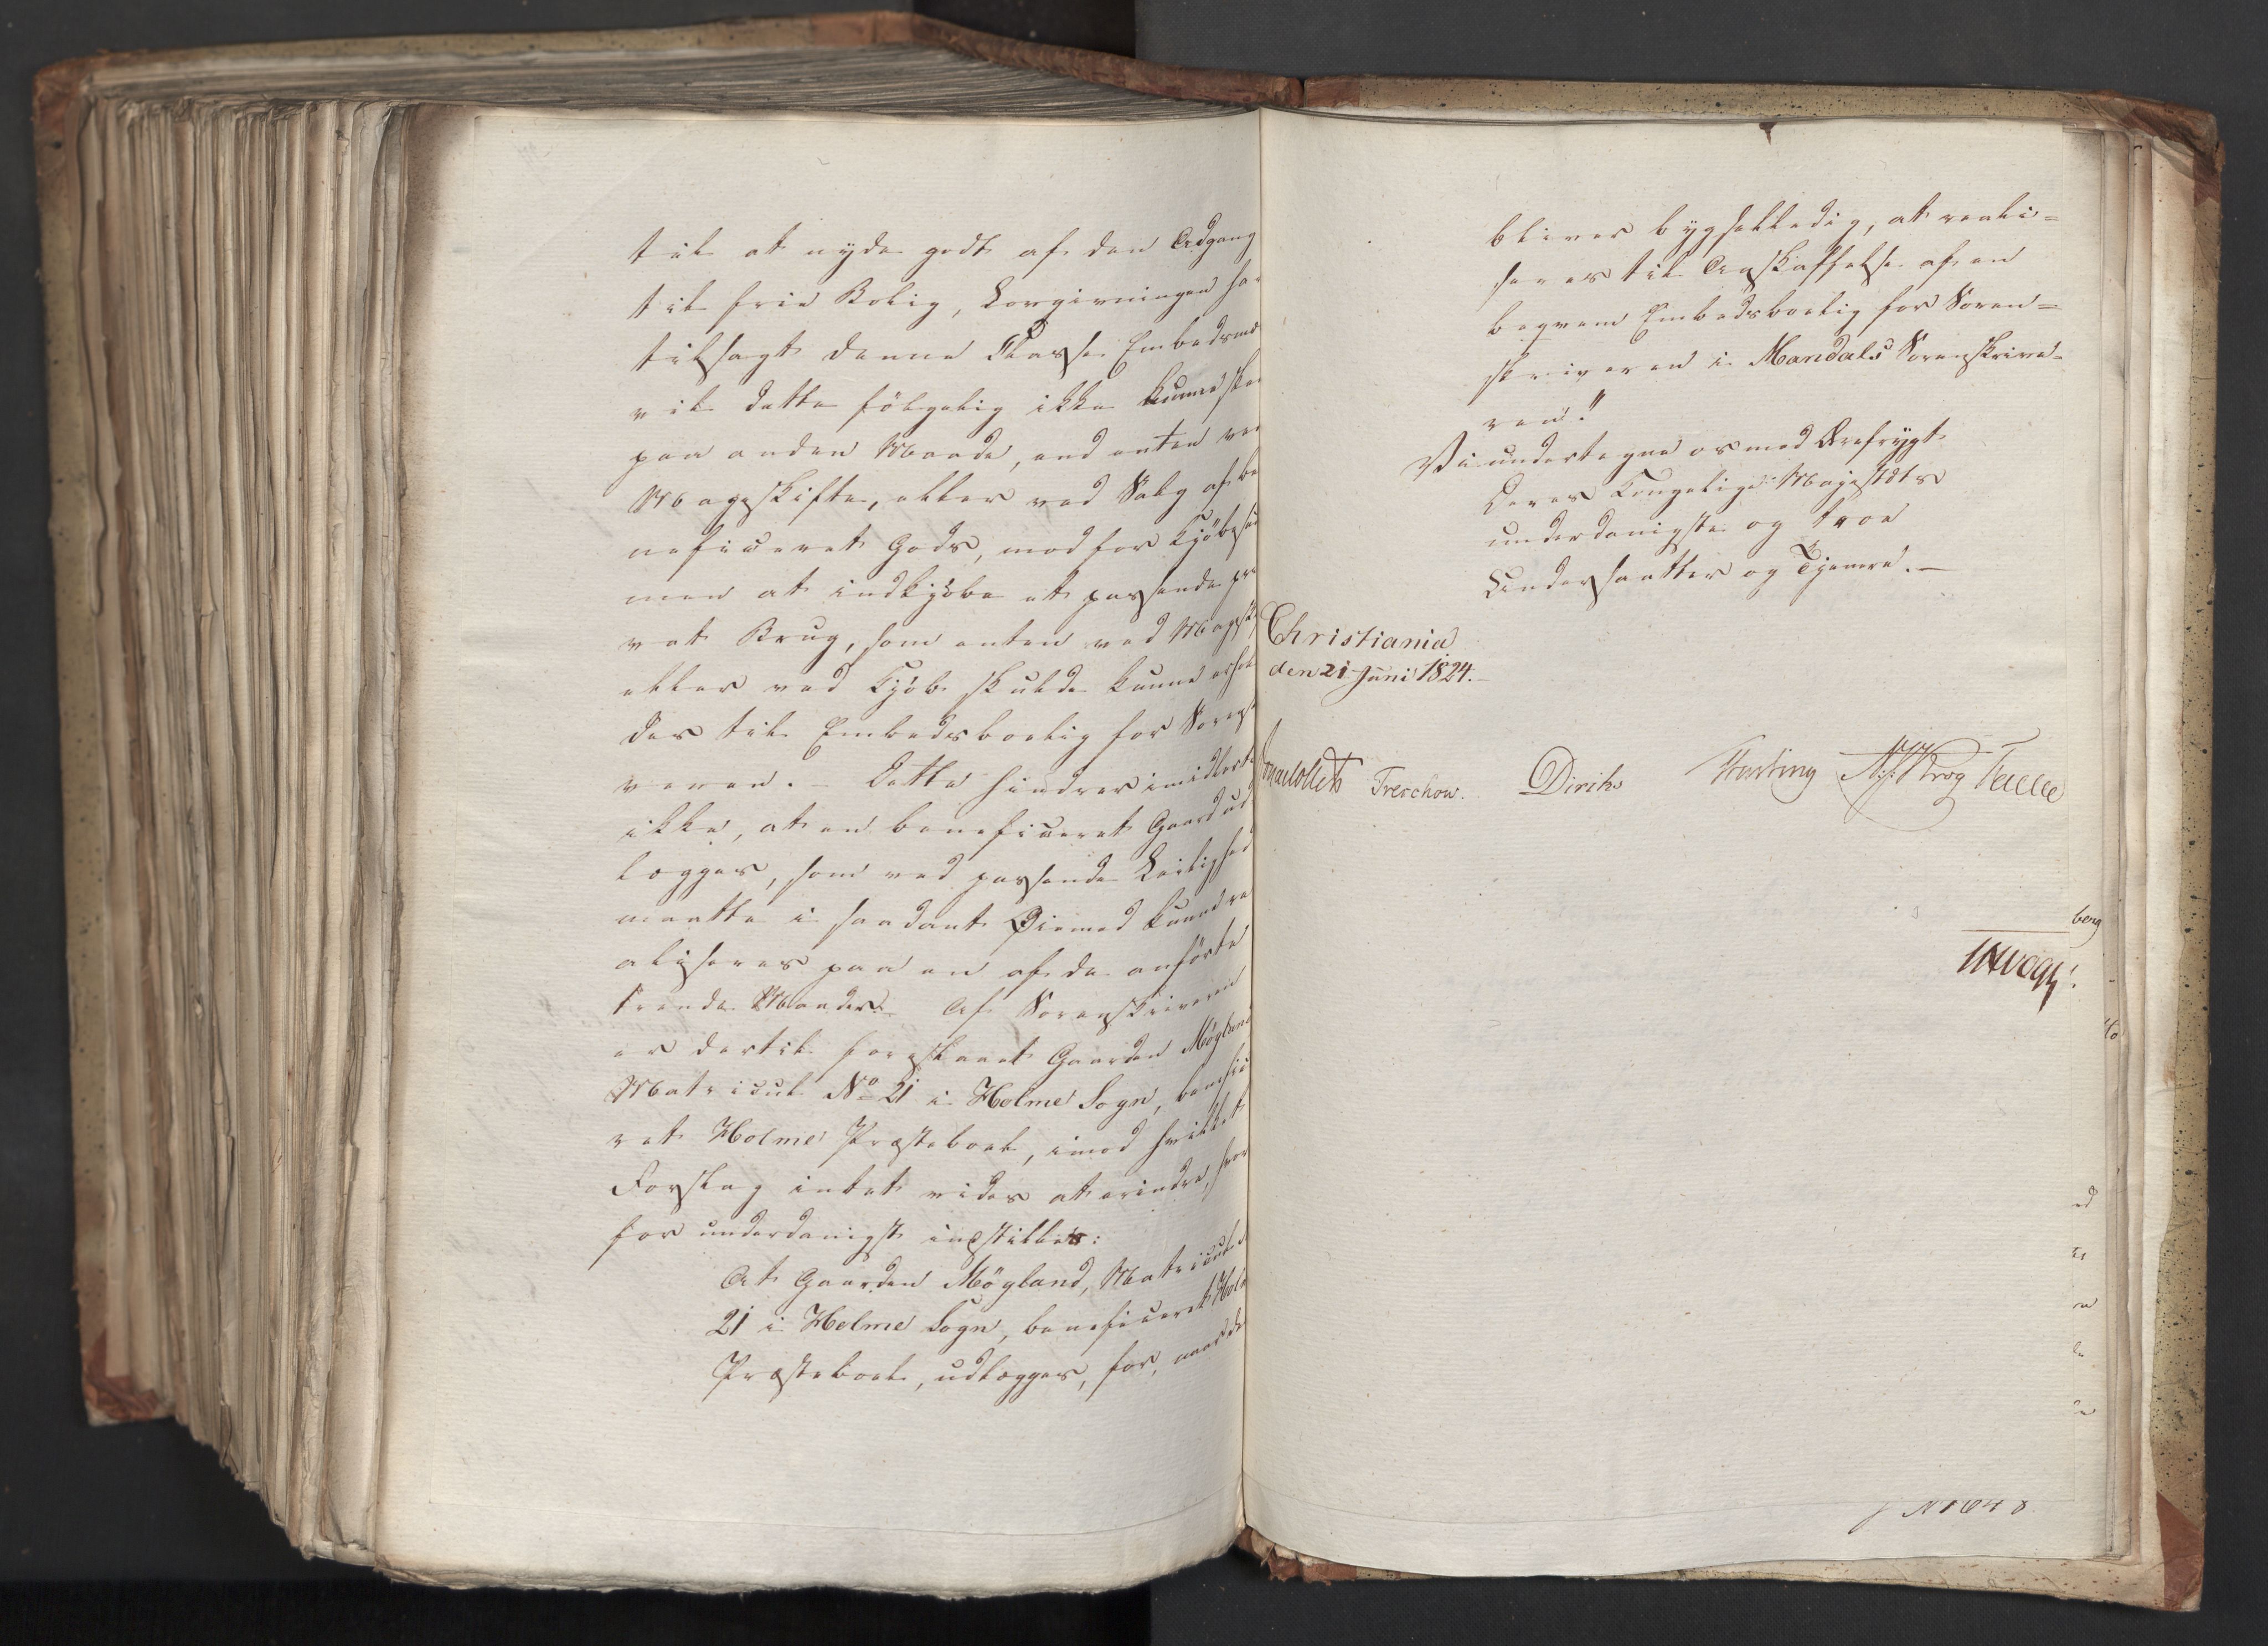 til at nyde godt af den Adgang
til frie Bolig, Lovgivningen ha
tilsagt denne Classe Embedsmæ
vil dette følgelig ikke kunne skee
paa anden Maade, end enten ved
Mageskifte, eller ved Salg af be
neficeret Gods, mod for Kjøbesu
men at indkjøbe et passende pri
vat Brug, som enten ved Magesk
eller ved Kjøb skulde kunne erhol
des til Embedsboelig for Sorensk
veren. – Dette hindrer imidlerti
ikke, at en beneficeret Gaard ud
lægges, som ved passende Leilighed
maatte i saadant Øiemed kunne re
aliseres paa en af de anførte
trende Maader. Af Sorenskriveren
er dertil foreslaaet Gaarden Møgland
Matricul No 21 i Holme Sogn, benefici
ret Holme Præsteboel, imod hvilket
Forslag intet vides at erindre, hvor
for underdanigst indstilles:
At Gaarden Møgland, Matricul N
21 i Holme Sogn, beneficeret Holm
Præsteboel, udlægges, for, naar de
bliver bygselledig, at reali=
seres til Anskaffelse af en
beqvem Embedsboelig for Soren=
skriveren i Mandals Sorenskrive=
rie."
Vi undertegne os med Ærefrygt
Deres Kongelige Majestæts
underdanigste og troe
Undersaatter og Tjenere. –
Christiania
den 21 Juni 1824. –
Collett Treschow. Diriks Hesting Krog Fasting
berg
Vogt.
to
ed
J N 1648